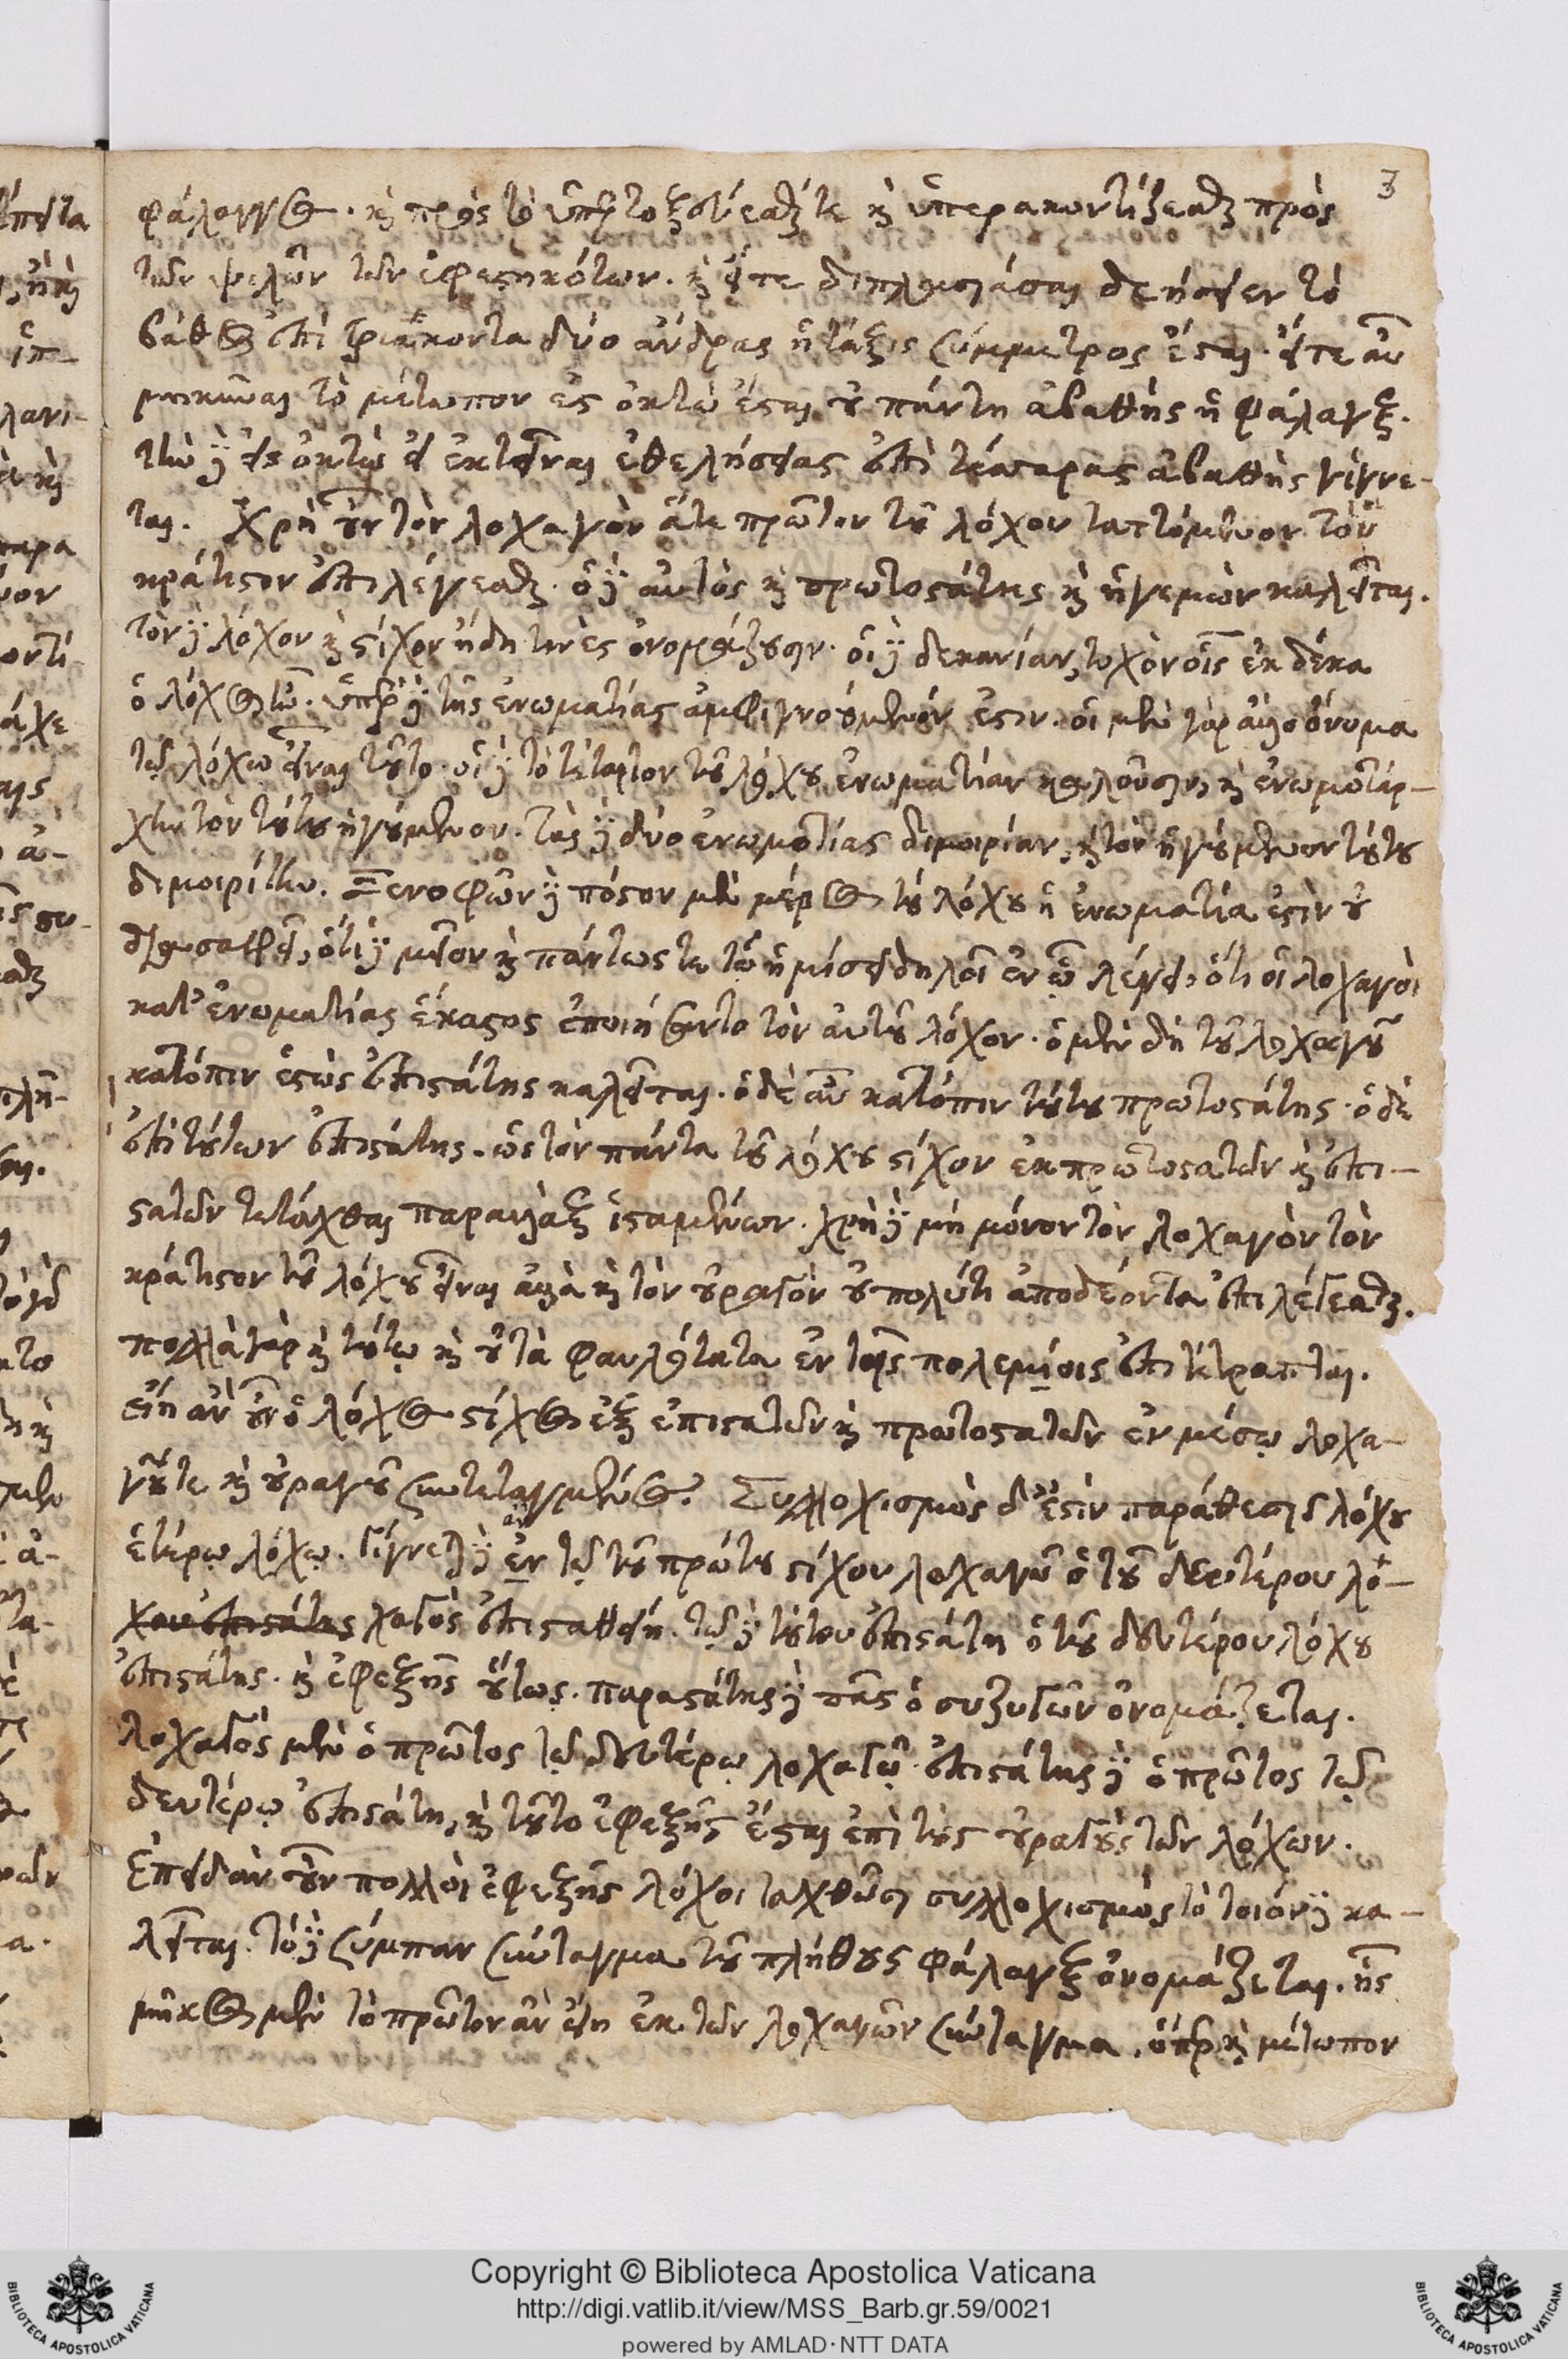 3
φάλαγγος. καὶ πρὸς τὸ ὑπερτοξεύεσθαί τε καὶ ὑπερακοντίζεσθαι πρὸς
τῶν ψιλῶν τῶν ἐφεστηκότων. καὶ εἴτε διπλασιάσαι δεήσειεν τὸ
βάθος ἐπὶ τριάκοντα δύο ἄνδρας ἡ τάξις σύμμετρος ἔσται. εἴτε αὖ
μηκῦναι τὸ μέτωπον ἐς ὀκτὼ ἔσται οὐ πάντη ἀβαθὴς ἡ φάλαγξ.
τὴν δὲ ἐς ὀκτὼ εἰ ἐκτεῖναι ἐθελήσειας ἐπὶ τέσσαρας ἀβαθὴς γίγνε-
ται. Χρὴ οὖν τὸν λοχαγὸν ἅτε πρῶτον τοῦ λόχου ταττόμενον τὸν
κράτιστον ἐπιλέγεσθαι. ὁ δὲ αὐτὸς καὶ πρωτοστάτης καὶ ἡγεμὼν καλεῖται.
τὸν δὲ λόχον καὶ στίχον ἤδη τινὲς ὀνομάζουσιν. οἱ δὲ δεκανίαν, τυχὸν οἷς ἐκ δέκα
ὁ λόχος ἦν. ὑπὲρ δὲ τῆς ἐνωματίας ἀμφιγνοούμενόν ἐστιν. οἱ μὲν γὰρ ἄλλο ὄνομα
τῷ λόχῳ εἶναι τοῦτο. οἱ δὲ τὸ τέταρτον τοῦ λόχου ἐνωματίαν καλοῦσιν, καὶ ἐνωμοτάρ-
χην τὸν τούτου ἡγούμενον. τὰς δὲ δύο ἐνωμοτίας διμοιρίαν, καὶ τὸν ἡγούμενον τούτου
διμοιρίτην. Ξενοφῶν δὲ πόσον μὲν μέρος τοῦ λόχου ἡ ἐνωματία ἐστὶν οὐ
διασαφεῖ, ὅτι δὲ μεῖον καὶ πάντως τε τῷ ἡμίσει δηλοῖ ἐν ᾧ λέγει, ὅτι οἱ λοχαγοὶ
κατ' ἐνωματίας ἕκαστος ἐποιήσαντο τὸν αὐτοῦ λόχον. ὁ μὲν δὴ τοῦ λοχαγοῦ
κατόπιν ἑστὼς ἐπιστάτης καλεῖται. ὁ δὲ αὖ κατόπιν τούτου πρωτοστάτης. ὁ δὲ
ἐπὶ τούτων ἐπιστάτης. ὡς τὸν πάντα τοῦ λόχου στίχον ἐκ πρωτοστατῶν καὶ ἐπι-
στατῶν τετάχθαι παραλλὰξ ἱσταμένων. χρὴ δὲ μὴ μόνον τὸν λοχαγὸν τὸν
κράτιστον τοῦ λόχου εἶναι ἀλλὰ καὶ τὸν οὐραγὸν οὐ πολύ τι ἀποδέοντα ἐπιλέγεσθαι.
πολλὰ γὰρ καὶ τούτῳ καὶ οὐ τὰ φαυλότατα ἐν τοῖς πολεμίοις ἐπιτέτραπται.
εἴη ἂν οὖν ὁ λόχος στίχος ἐξ ἐπιστατῶν καὶ πρωτοστατῶν ἐν μέσῳ λοχα-
γοῦ τε καὶ οὐραγοῦ συντεταγμένος. Συλλοχισμὸς δ' ἔστιν παράθεσις λόχου
ἑτέρῳ λόχῳ. Γίγνεται δὲ ἐν τῷ τοῦ πρώτου στίχου λοχαγῷ ὁ τοῦ δευτέρου λό-
χου ἐπιστάτης χαγὸς ἐπισταθείη. τῷ δὲ τούτου ἐπιστάτῃ ὁ τοῦ δευτέρου λόχου
ἐπιστάτης. καὶ ἐφεξῆς οὕτως. παραστάτης δὲ πᾶς ὁ συζυγῶν ὀνομάζεται.
λοχαγὸς μὲν ὁ πρῶτος τῷ δευτέρῳ λοχαγῷ. ἐπιστάτης δὲ ὁ πρῶτος τῷ
δευτέρῳ ἐπιστάτῃ, καὶ τοῦτο ἐφεξῆς ἔσται ἐπὶ τοὺς οὐραγοὺς τῶν λόχων.
Ἐπειδὰν οὖν πολλοὶ ἐφεξῆς λόχοι ταχθῶσι συλλοχισμὸς τὸ τοιόνδε κα-
λεῖται. τὸ δὲ σύμπαν σύνταγμα τοῦ πλήθους φάλαγξ ὀνομάζεται. ἧς
μῆκος μὲν τὸ πρῶτον ἂν εἴη ἐκ τῶν λοχαγῶν σύνταγμα. ὅπερ καὶ μέτωπον
Copyright © Biblioteca Apostolica Vaticana
http://digi.vatlib.it/view/MSS_Barb.gr.59/0021
powered by AMLAD·NTT DATA
BIBLIOTECA APOSTOLICA VATICANA
BIBLIOTECA APOSTOLICA VATICANA